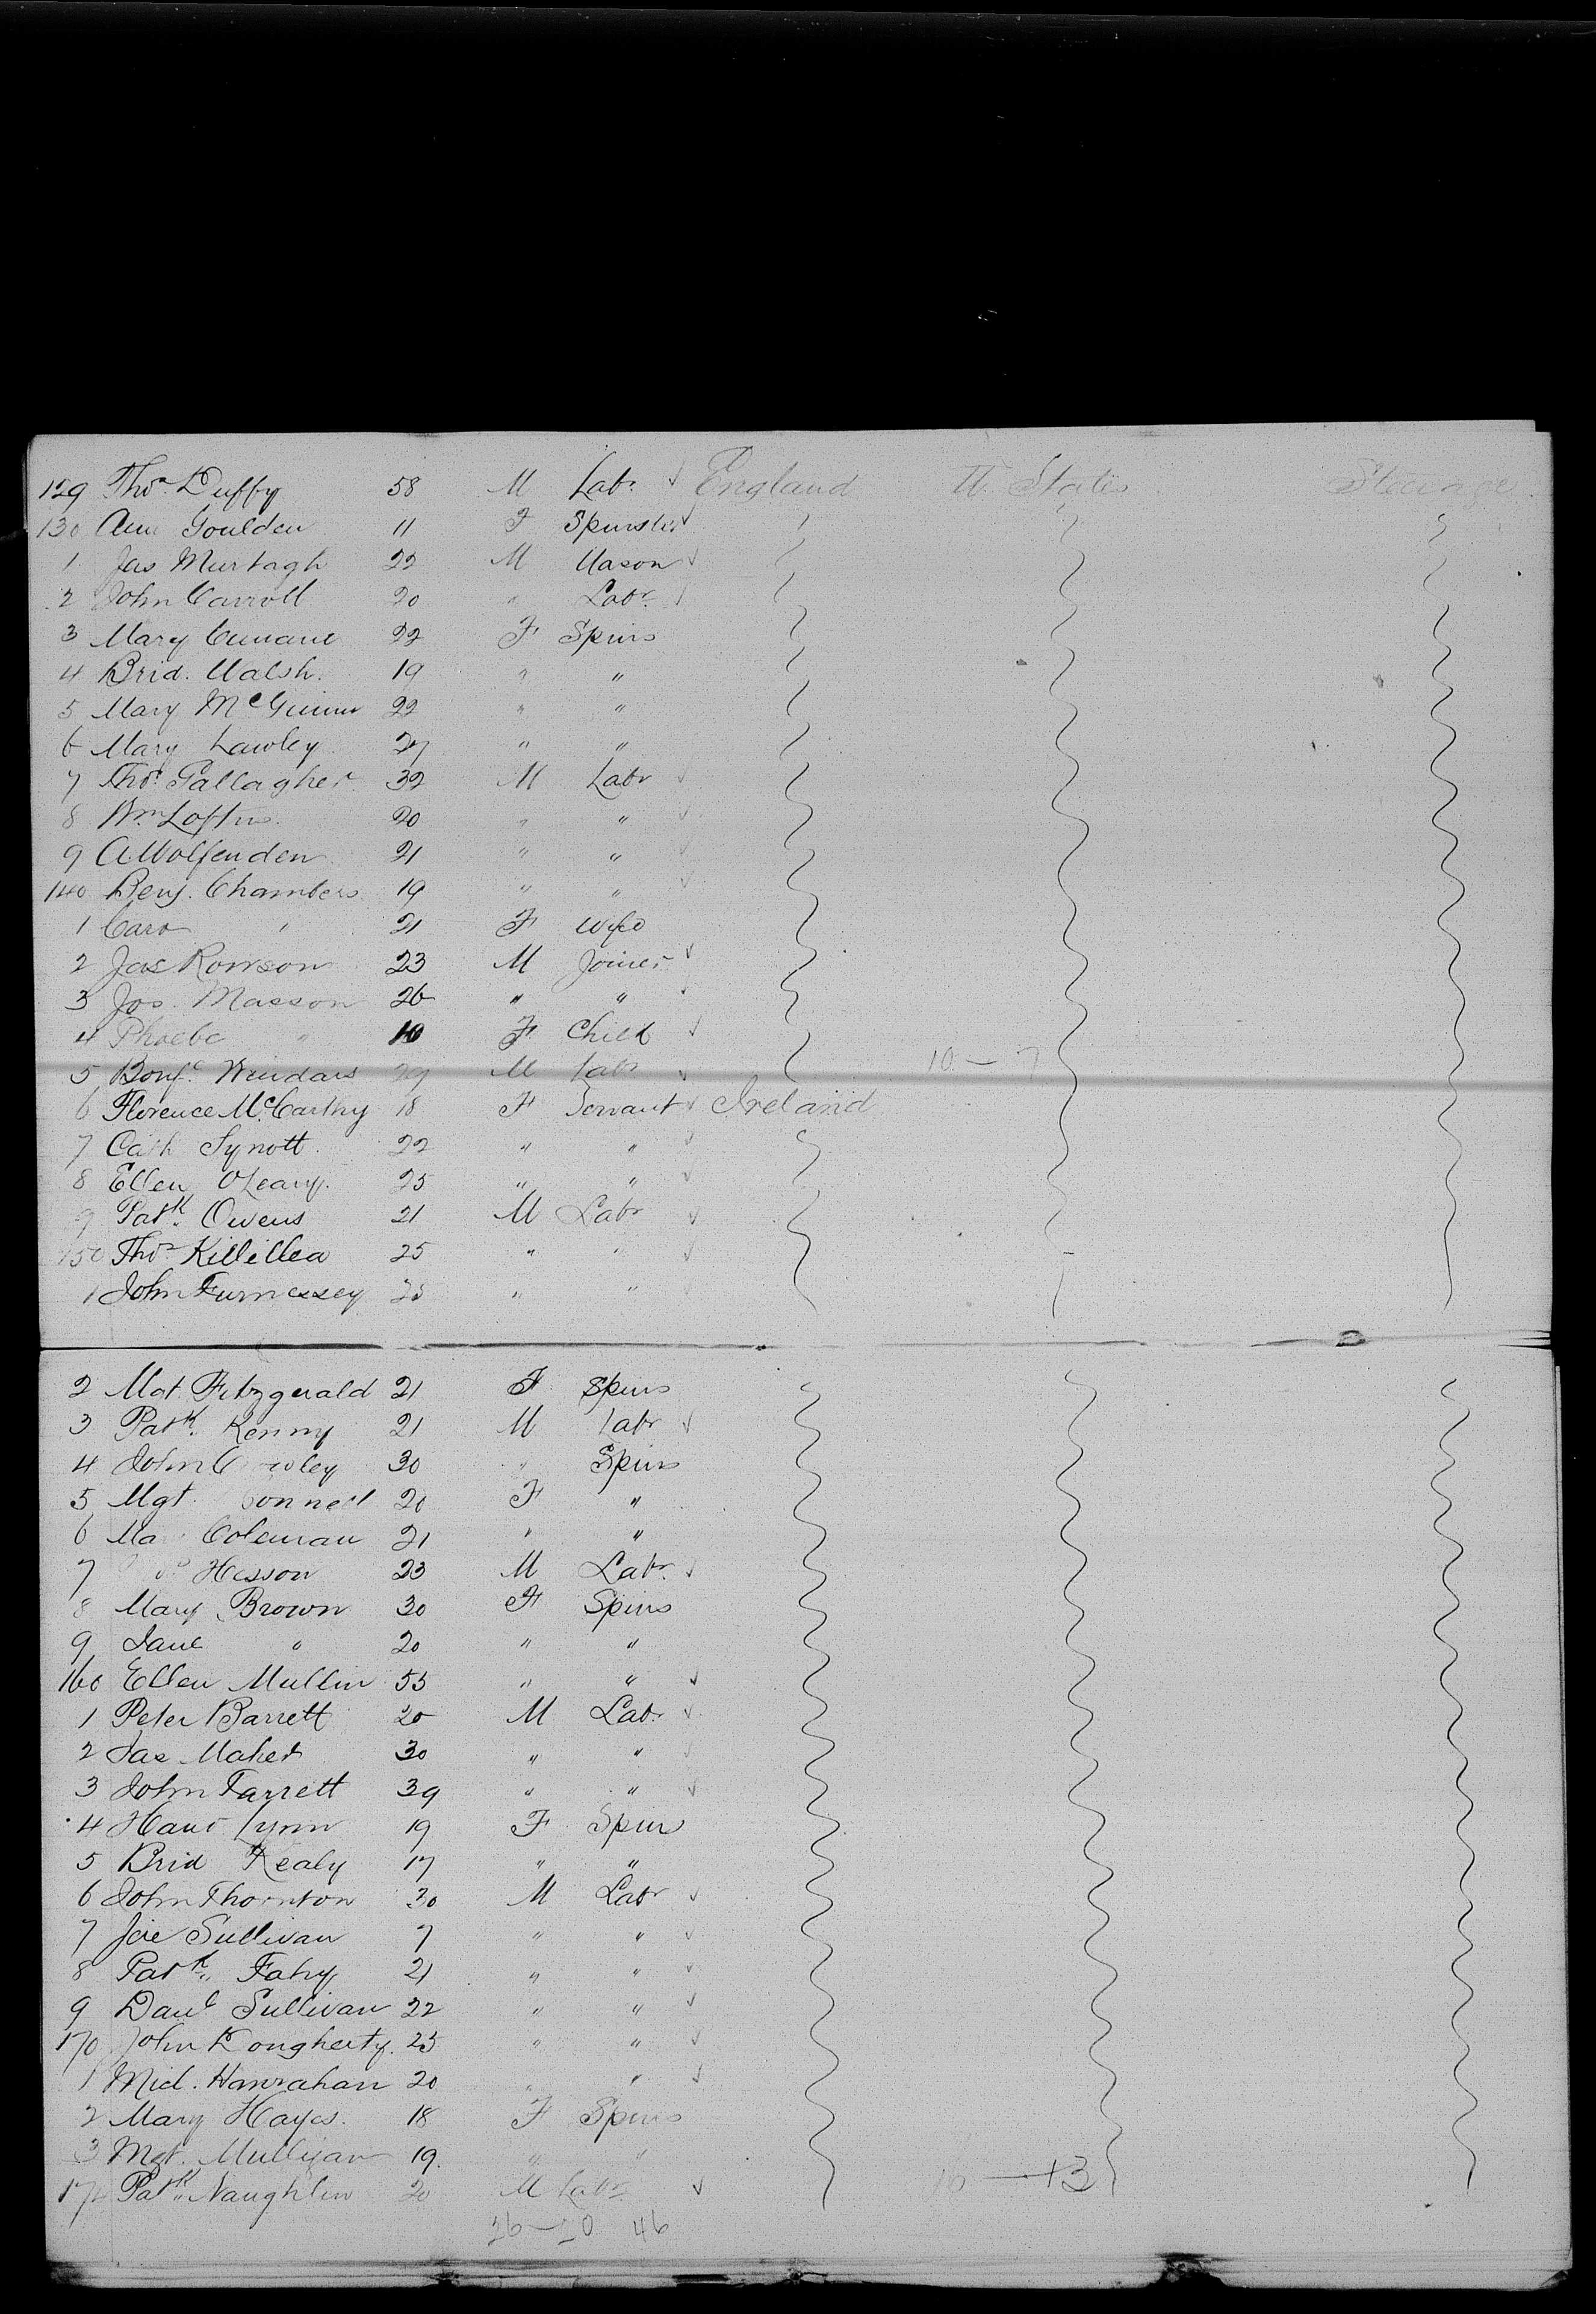 129 Thos. Duffy 58 M Labr. ✓ England U. States Steerage
130 Ann Goulden 11 F Spinster ✓
1 Jas Murtagh 22 M Mason ✓
2 John Carroll 20 " Labr. ✓
3 Mary Cunane 22 F Spins
4 Brid. Walsh. 19 " "
5 Mary McGuinn 22 " "
6 Mary Lawley 27 " "
7 Thos. Gallagher 32 M Labr ✓
8 Wm. Loftus. 20 " " ✓
9 A Wolfenden 21 " " ✓
140 Benj. Chambers 19 " " ✓
1 Caro " 21 F Wife
2 Jas Rowson 23 M Joiner ✓
3 Jos. Masson 26 " " ✓
4 Phoebe " 10 F Child ✓
5 29 M Labr ✓ 10 — 7
6 Florence McCarthy 18 F Servant ✓ Ireland
7 Cath Synott. 22 " " ✓
8 Ellen O'Leary. 25 " " ✓
9 Patk. Owens 21 M Labr ✓
150 Thos. Killillea 25 " " ✓
1 John Furnessey " "
2 Mgt. Fitzgerald 21 F Spins
3 Patk. Kenny 21 M Labr ✓
4 John 30 " Spins
5 Mgt. Connell 20 F "
6 Coleman 21 " "
7 Hesson 23 M Labr. ✓
8 Mary Brown 30 F Spins
9 Jane " 20 " "
160 Ellen Mullin 55 " " ✓
1 Peter Barrett 20 M Labr ✓
2 Jas Maher 30 " " ✓
3 John Farrett 39 " " ✓
4 Lynn 19 F Spins
5 Brid Kealy 17 " "
6 John Thornton 30 M Labr ✓
7 Joe Sullivan 7 " " ✓
8 Patk. Fahy 21 " " ✓
9 Danl Sullivan 22 " " ✓
170 John Dougherty. 25 " " ✓
1 Micl. Hanrahan 20 " " ✓
2 Mary Hayes. 18 F Spins
3 Mgt. Mulligan 19. " "
174 Patk. Naughlin 20 M Labr. ✓ 16 — 13
26 — 20 46